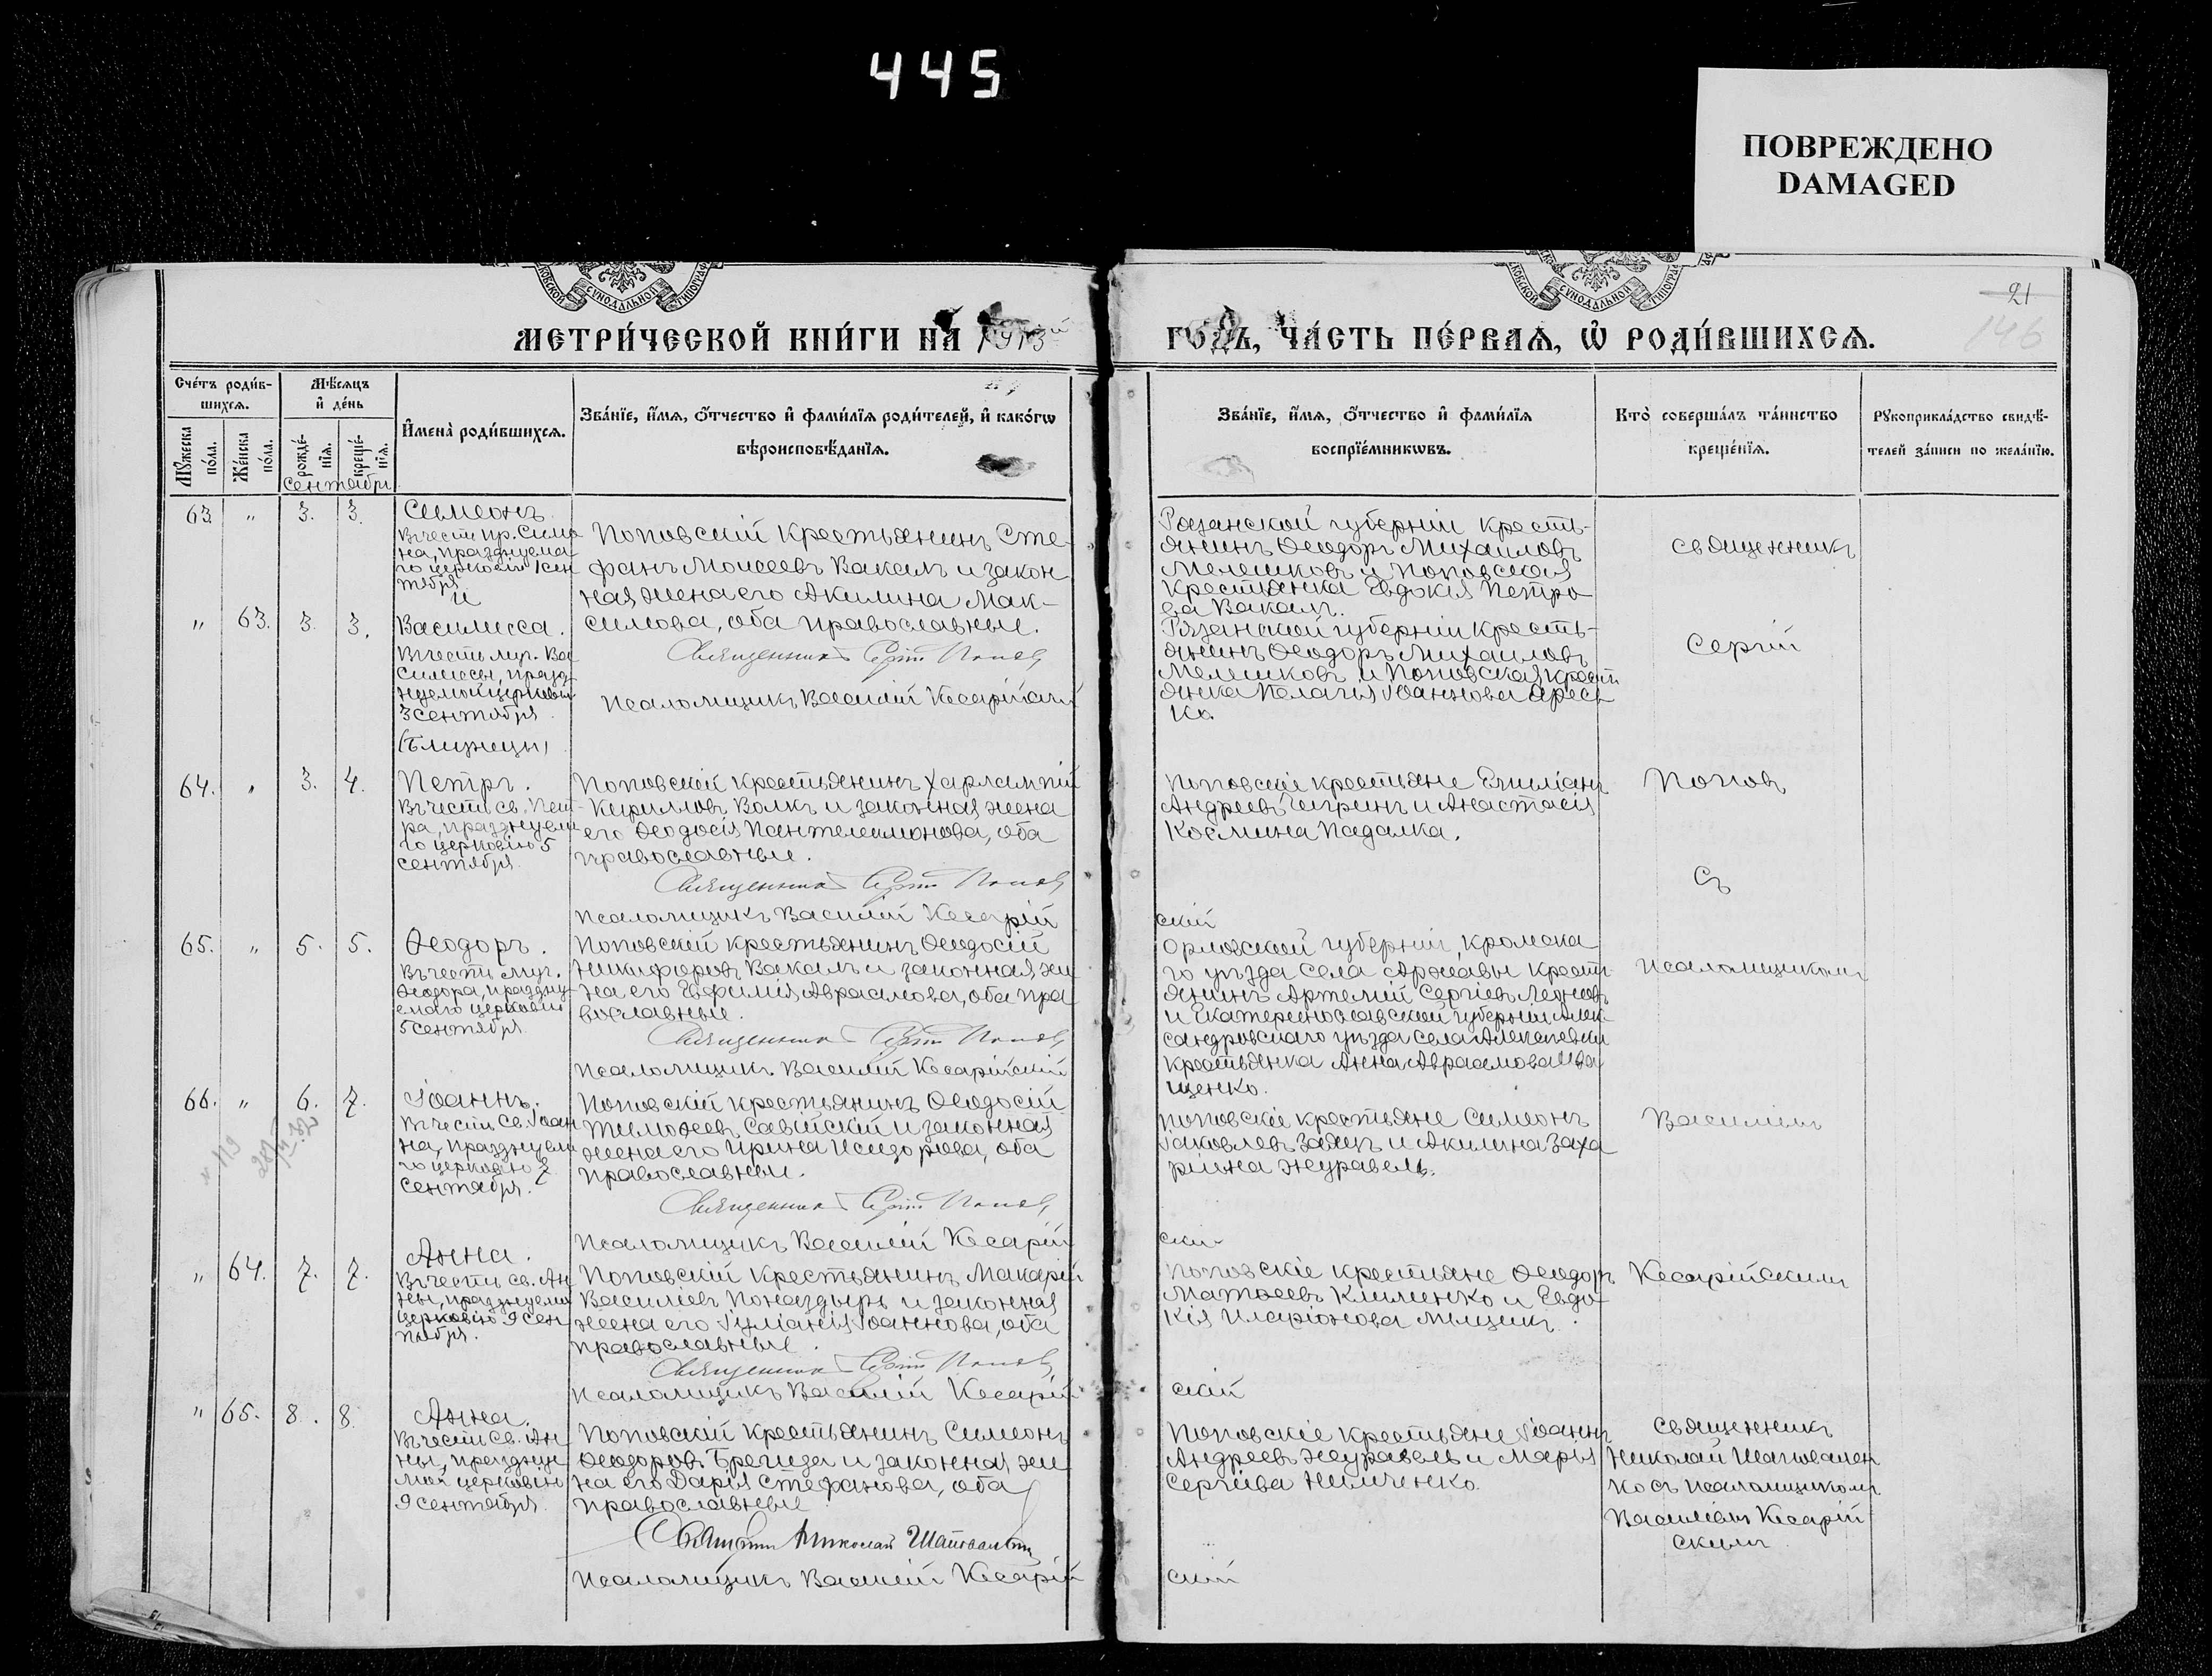 445
ПОВРЕЖДЕНО
DAMAGED
СУНОДАЛЬНОЙ
СУНОДАЛЬНОЙ
21
146
МЕТРИ́ЧЕСКОЙ КНИ́ГИ НА 1913
ГОДЪ, ЧА́СТЬ ПЕ́РВАѦ, Ѡ РОДИ́ВШИХСѦ.
Сче́тъ роди́в-
шихсѧ.
Мꙋ́жеска по́ла.
Же́нска по́ла.
Мѣ́сѧцъ
и҆ де́нь
рожде́-
нїѧ.
креще́-
нїѧ.
И҆мена̀ роди́вшихсѧ.
Зва́нїе, и҆́мѧ, ѻ҆́тчество и҆ фами́лїѧ роди́телей, и҆ како́гѡ
вѣроисповѣ́данїѧ.
Зва́нїе, и҆́мѧ, ѻ҆́тчество и҆ фами́лїѧ
воспрїе́мникѡвъ.
Кто̀ соверша́лъ та́инство
креще́нїѧ.
Рꙋкоприкла́дство свидѣ́-
телей за́писи по жела́нїю.
Сентября
63. " 3. 3.
Симеонъ.
Въ честь пр. Симе
на, празднуема
го церковію 1 сен
тября
и
" 63. 3. 3.
Василисса.
Въ честь муч. Ва
силисы, празд
нуемой церковію
3 сентября
(Близнецы)
Поповскій крестьянинъ Сте-
фанъ Моисеевъ Вакалъ и закон
ная жена его Акилина Мак-
симова, оба православные.
Священникъ Сергій Поповъ
Псаломщикъ Василій Кесарійскій
Рязанской губерніи кресть-
янинъ Ѳеодоръ Михаиловъ
Мелешковъ и Поповская
крестьянка Евдокія Петро
ва Вакалъ.
Рязанской губерніи кресть-
янинъ Ѳеодоръ Михаиловъ
Мелешковъ и Поповская крест
янка Пелагія Іоаннова
ко.
Священникъ
Сергій
64. " 3. 4.
Петръ.
Въ честь св. Пет-
ра, празднуема
го церковію 5
сентября.
Поповскій крестьянинъ Харлампій
Кирилловъ Волкъ и законная жена
его Ѳеодосія Пантелеимонова, оба
православные.
Священникъ Сергій Поповъ
Псаломщикъ Василій Кесарій
скій
Поповскіе крестьяне Емиліанъ
Андреевъ Чигринъ и Анастасія
Косьмина Падалка.
Поповъ
съ
65. " 5. 5.
Ѳеодоръ.
Въ честь муч.
Ѳеодора, праздну-
емаго церковію
5 сентября.
Поповскій крестьянинъ Ѳеодосій
Никифоровъ Вакалъ и законная же
на его Евфимія Авраамова, оба пра
вославные.
Священникъ Сергій Поповъ
Псаломщикъ Василій Кесарійскій
Орловской губерніи, Кромска
го уѣзда села крестья
янинъ Артемій Сергіевъ
и Екатеринославской губерніи Алек-
сандровскаго уѣзда села Алексѣевки
крестьянка Анна Авраамова Ива
щенко.
псаломщикомъ
66. " 6. 7.
Іоаннъ.
Въ честь св. Іоан
на, празднуема
го церковію 7
сентября.
Поповскій крестьянинъ Ѳеодосій
Тимоѳеевъ Савійскій и законная
жена его Ирина Исидорова, оба
православные.
Священникъ Сергій Поповъ
Псаломщикъ Василій Кесарій
скій
Поповскіе крестьяне Симеонъ
Іаковлевъ Заяцъ и Акилина Заха
ріина Журавель.
Василіемъ
" 64. 7. 7.
Анна.
Въ честь св. Ан
ны, празднуемой
церковію 9 сен
тября.
Поповскій крестьянинъ Макарій
Василіевъ Поназдырь и законная
жена его Іуліанія Іоаннова, оба
православные.
Священникъ Сергій Поповъ
Псаломщикъ Василій Кесарій
скій
Поповскіе крестьяне Ѳеодоръ
Матѳеевъ Клименко и Евдо-
кія Иларіонова Мищикъ.
Кесарійскимъ
" 65. 8. 8.
Анна.
Въ честь св. Ан
ны, праздруе
мой церковію
9 сентября.
Поповскій крестьянинъ Симеонъ
Ѳеодоровъ Брегида и законная же
на его Дарія Стефанова, оба
православные
Священникъ Николай Шаповаленко
Псаломщикъ Василій Кесарій
скій
Поповскіе крестьяне Іоаннъ
Андреевъ Журавель и Марія
Сергіева Нимченко.
Священникъ
Николай Шаповален
ко съ псаломщикомъ
Василіемъ Кесарій
скимъ